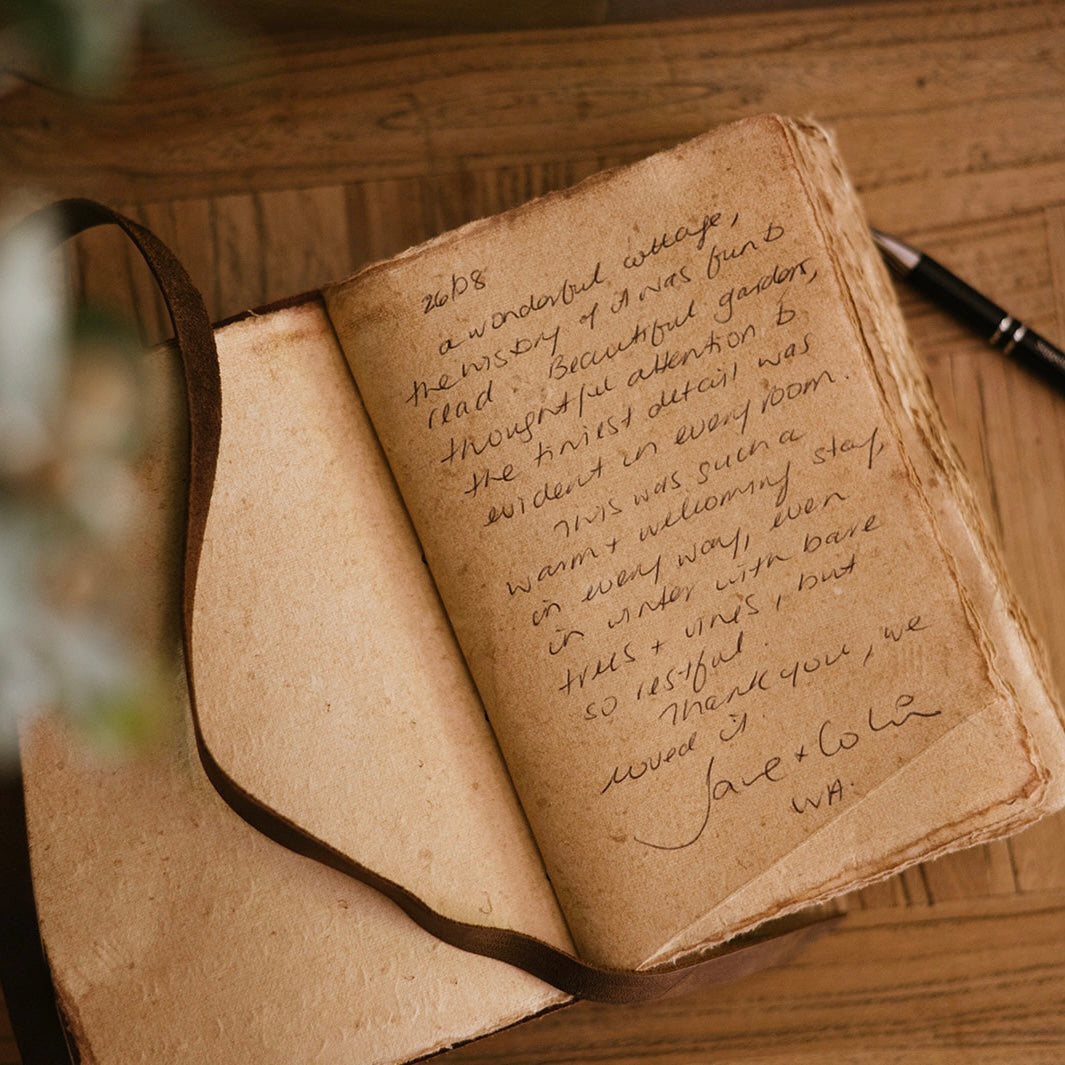 26/08
a wonderful cottage,
the history of it was fun to
read. Beautiful gardens,
thoughtful attention to
the tiniest detail was
evident in every room.
This was such a
warm + welcoming stay,
in every way, even
in winter with bare
trees + vines, but
so restful.
Thank you, we
loved it.
Jane + Colin
WA.